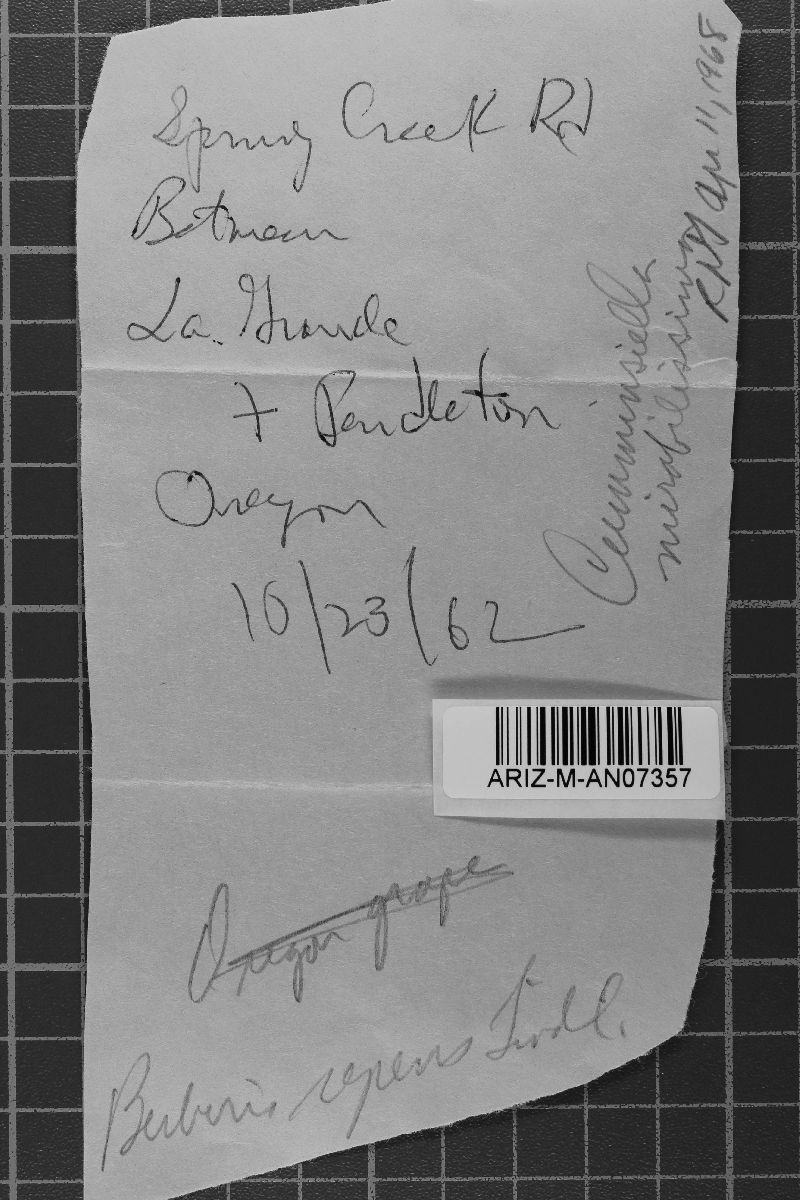 Spring Creek Rd
Between
La. Grande
+ Pendleton
Oregon
10/23/62
Cumminsiella
mirabilissima
RNG Apr 11, 1968
ARIZ-M-AN07357
Oregon grape
Berberis repens Lindl.